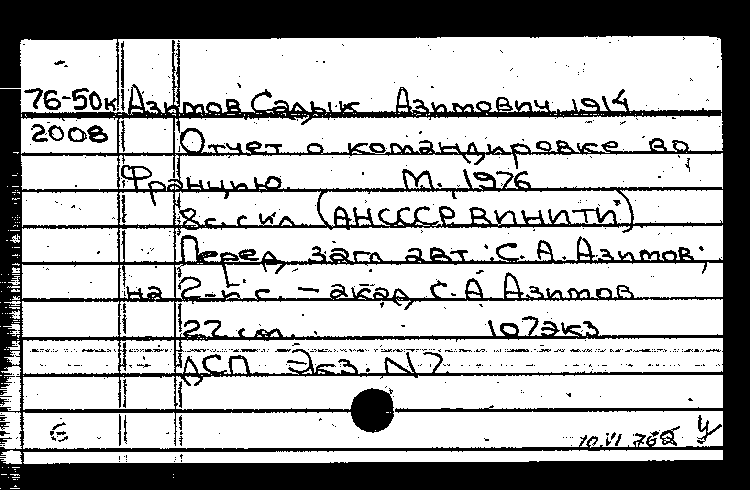 76-50к Азимов Садык Азимович, 1914
2008 Отчет о командировке во
Францию. М., 1976
8с. с ил. (АН СССР. ВИНИТИ)
Перед загл. авт.: С. А. Азимов;
на 2-й с. – акад. С. А. Азимов
27 см. 107экз
ДСП Экз. N7
10.VI 76